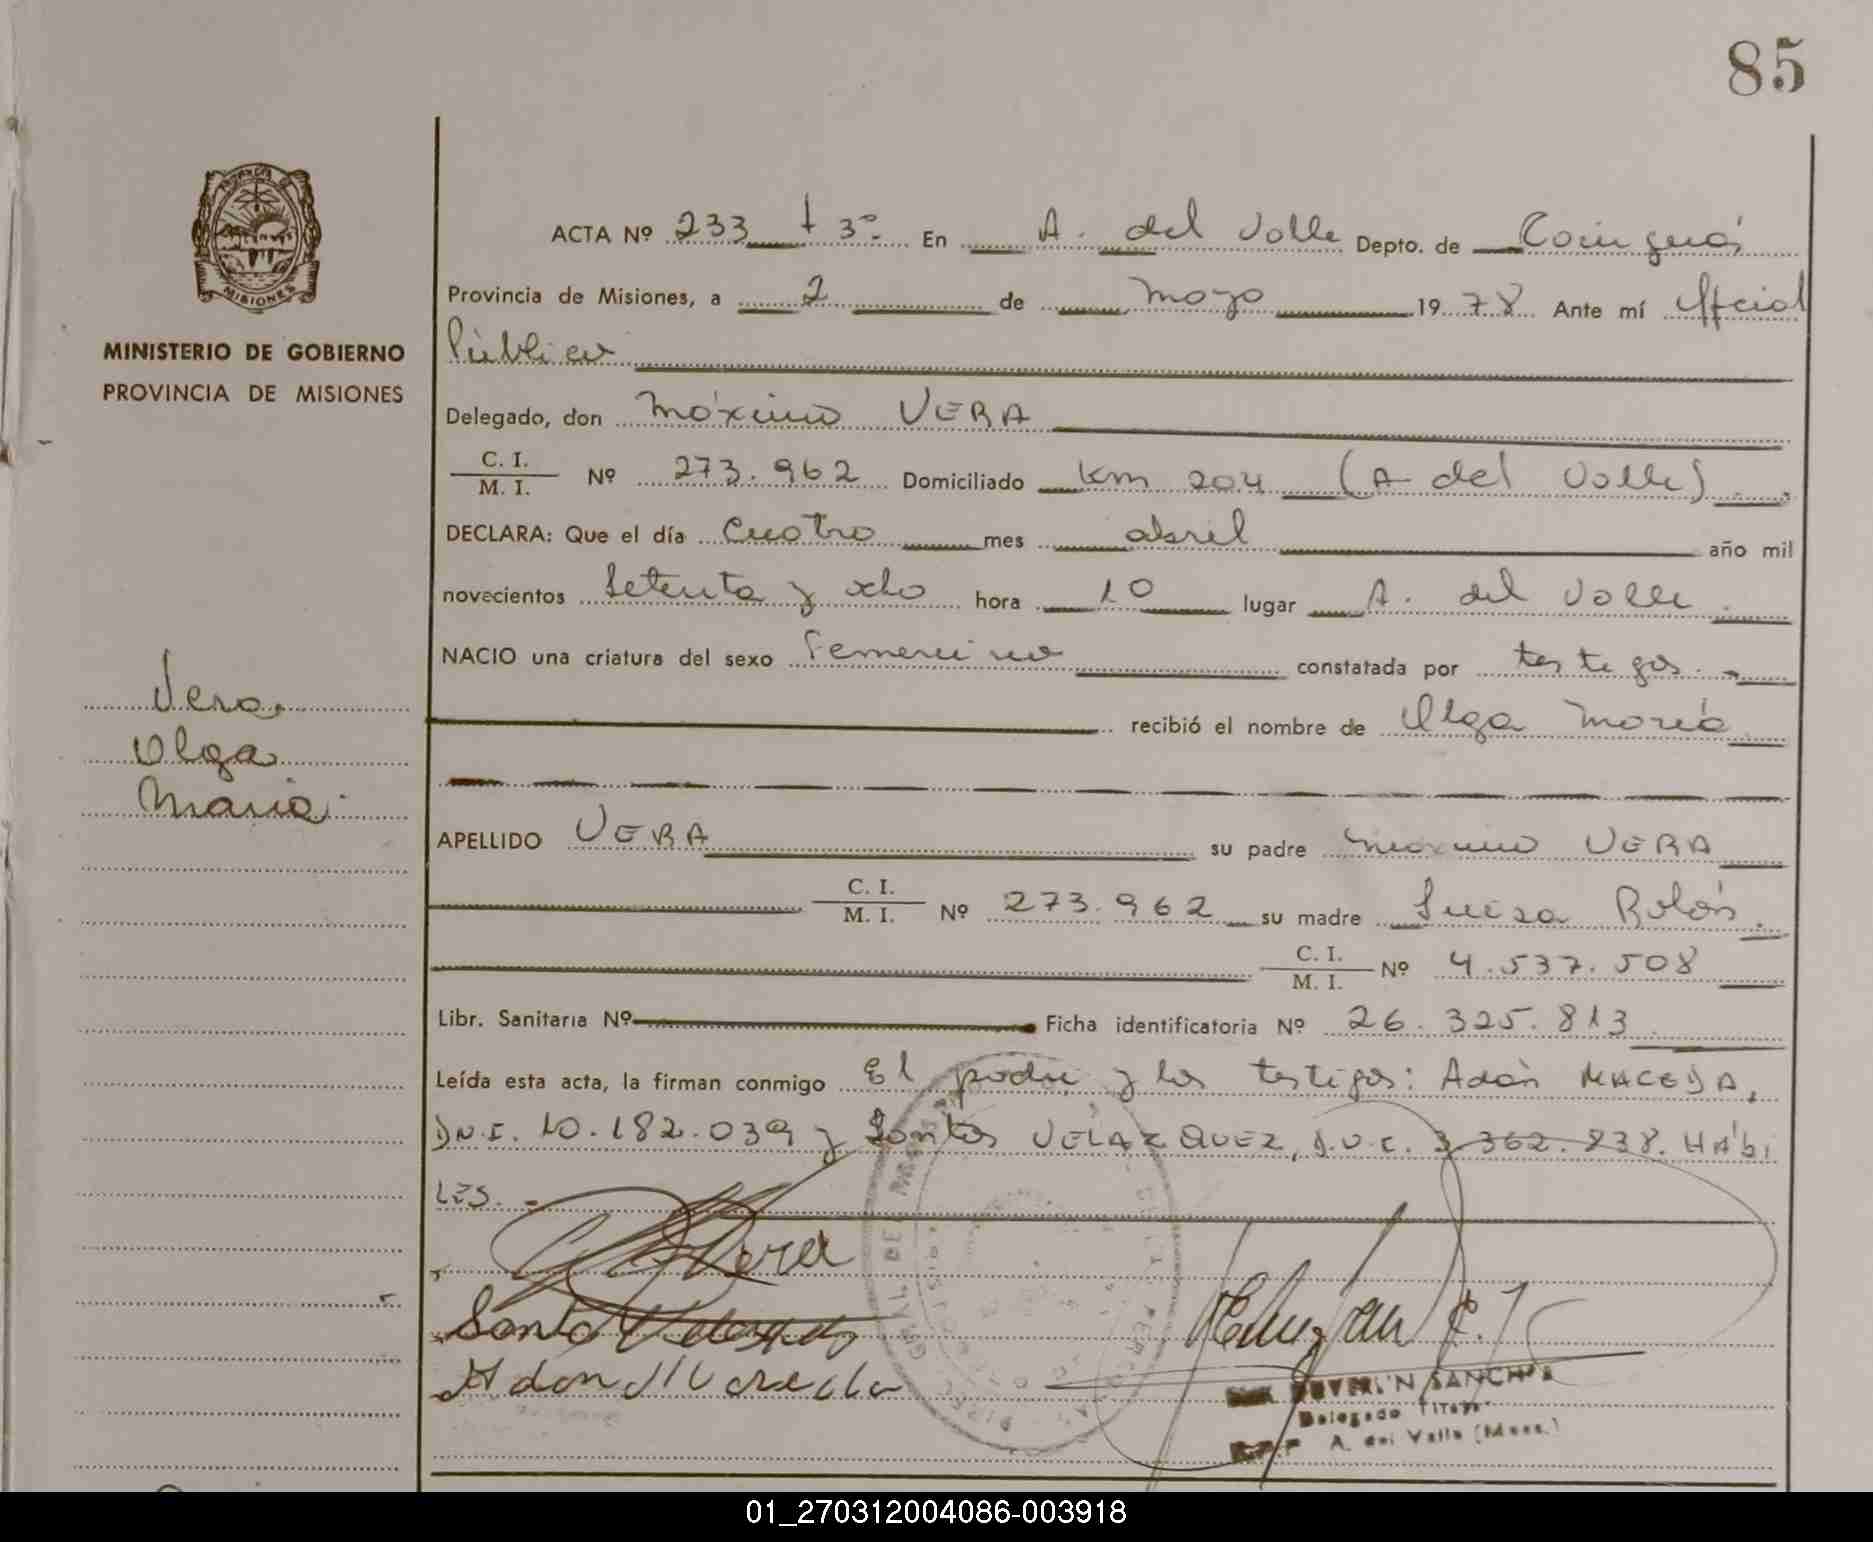 85
ACTA Nº 233 t 3º En A. del Valle Depto. de Cainguás
Provincia de Misiones, a 2 de mayo 1978 Ante mí Oficial
Público
MINISTERIO DE GOBIERNO
PROVINCIA DE MISIONES
Delegado, don Máximo VERA
C. I.
M. I. Nº 273.962 Domiciliado Km 204 (A del Valle)
DECLARA: Que el día Cuatro mes abril año mil
novecientos Setenta y ocho hora 10 lugar A. del Valle
NACIO una criatura del sexo Femenino constatada por testigos.
Vera
Olga
María
recibió el nombre de Olga María
APELLIDO VERA su padre Máximo VERA
C. I.
M. I. Nº 273.962 su madre Luisa Rolón
C. I.
M. I. Nº 4.537.508
Libr. Sanitaria Nº Ficha identificatoria Nº 26.325.813
Leída esta acta, la firman conmigo El padre y los testigos: Adán MACEDA,
D.N.I. 10.182.039 y Santos VELAZQUEZ, D.N.I. 3 362.838. HÁBI
LES.
Vera
Santo Velazquez
Adan
SANCHEZ
Delegado Titular
A. del Valle (Mnes.)
01_270312004086-003918